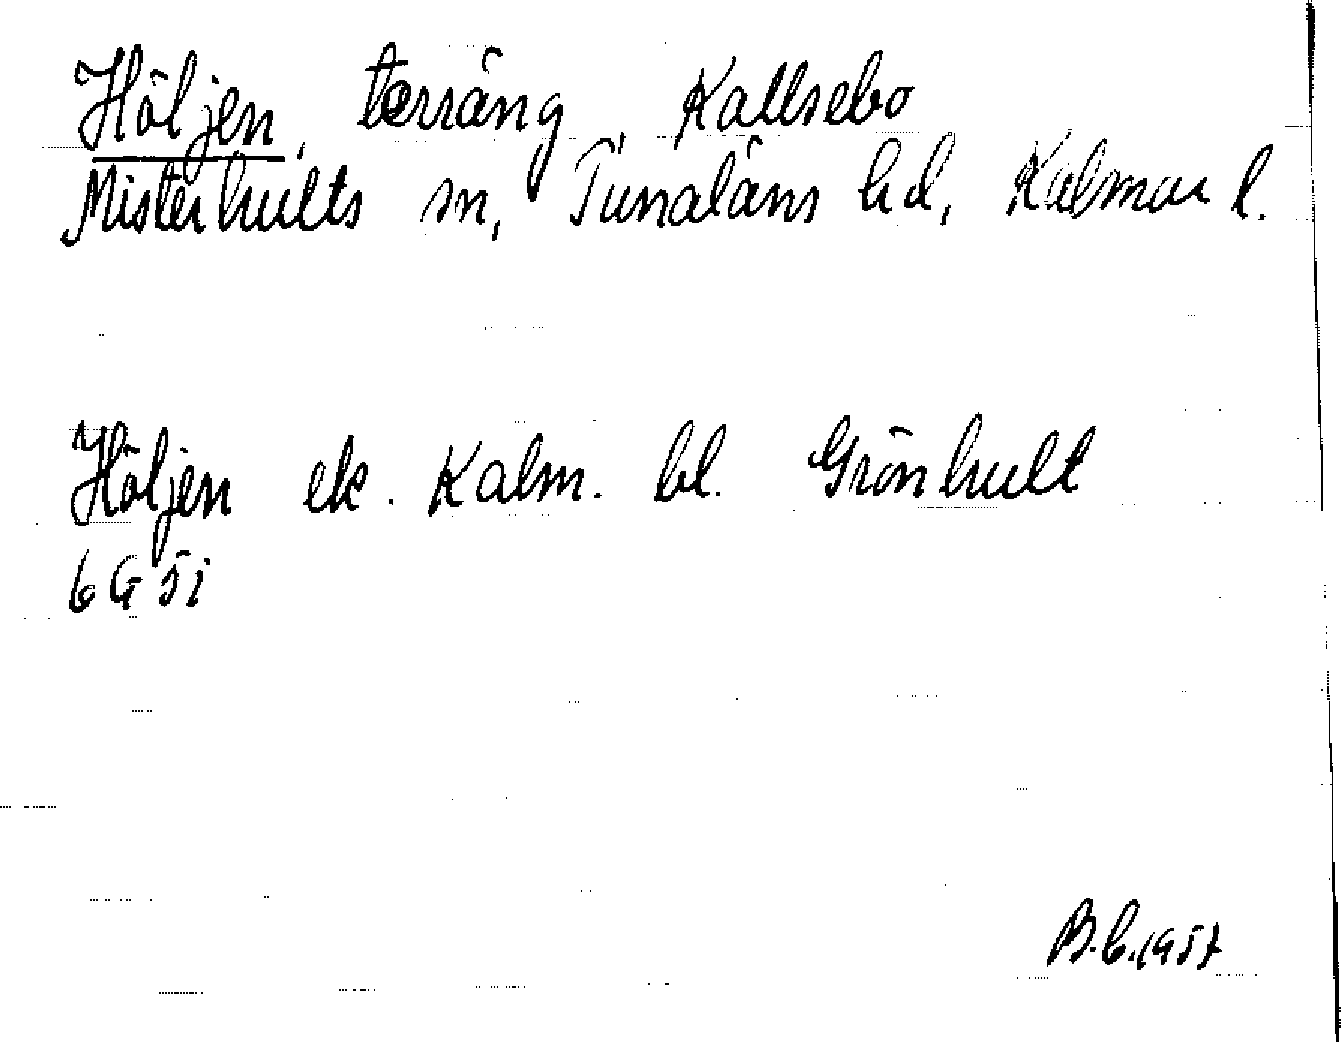 Höljen, terräng Kallsebo
Misterhults sn, Tunaläns hd, Kalmar l.
Höljen ek. Kalm. bl. Grönhult
6G 5i
B.L. 1957